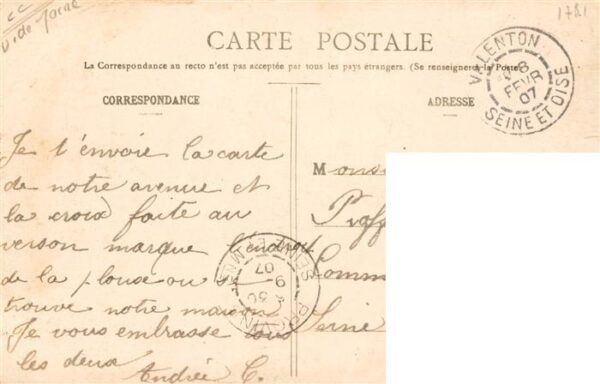 cc
1781
CARTE POSTALE
La Correspondance au recto n'est pas acceptée par tous les pays étrangers. (Se renseigner à la Poste
CORRESPONDANCE
ADRESSE
VALENTON
8
FEVR
07
SEINE ET OISE
Je t'envoie la carte
de notre avenue et
la croix faite au
verson marque l'endroit
de la place ou se
trouve notre maison
Je vous embrasse tous
les deux
Andrée C.
M
Comm
Seine
PROVINS
SEINE ET MNE
9
07